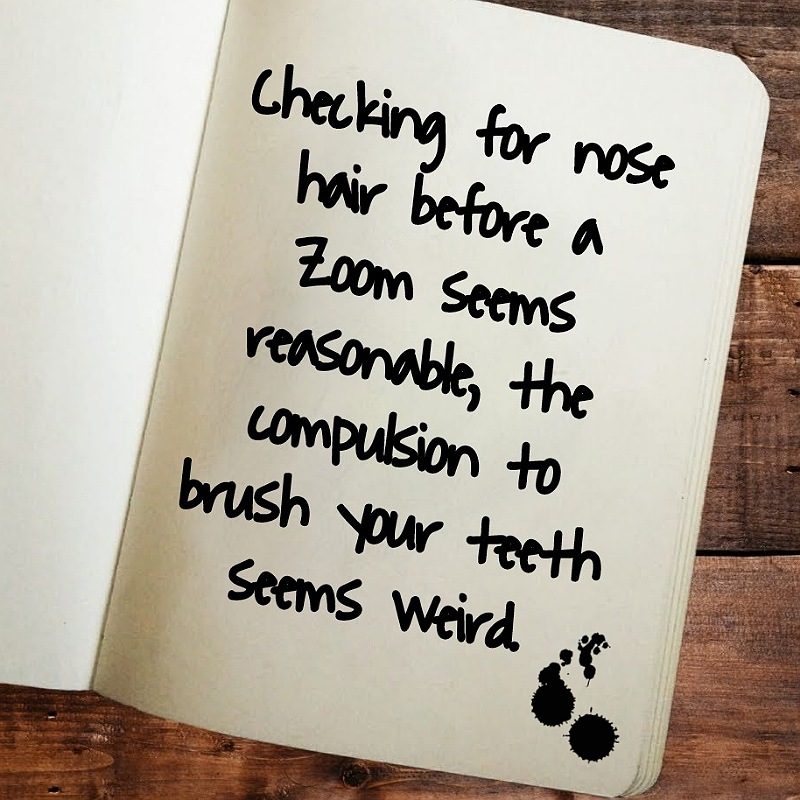 Checking for nose
hair before a
Zoom seems
reasonable, the
compulsion to
brush your teeth
seems weird.